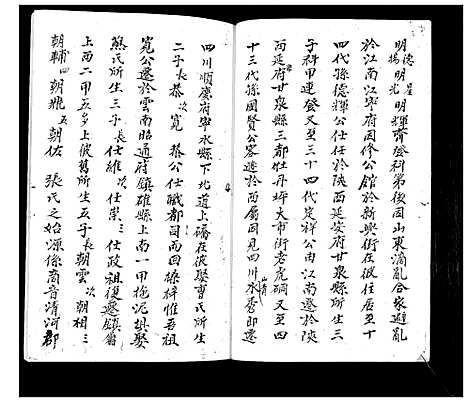 明德 星 明輝齊登科第後因山東滴亂合家避亂
明揚 明光
於江南江寧府因修公館於新興街在彼住居至十
四代孫德輝公仕任於陝西延安府甘泉縣所生三
子科甲運登又至三十四代定祥公由江南遷於陝
西延府甘泉縣三都牡丹坪大市街老虎硐又至
十三代孫國賢公客遊於西屬因見四川山清水秀即遷
四川順慶府寧水縣下北道上礄在彼娶曹氏所生
二子長恭次寬 恭公仕職都司而回梓惟吾祖
寬公遷於雲南昭通府鎮雄縣上南一甲拖泥垻娶
熊氏所生三子長仕維次仕崇三仕政祖復遷鎮屬
上西二甲五夛上彼舊所生五子長朝雲次朝相三
朝輔四朝兆五朝佐 張氏之始源係商音清河郡